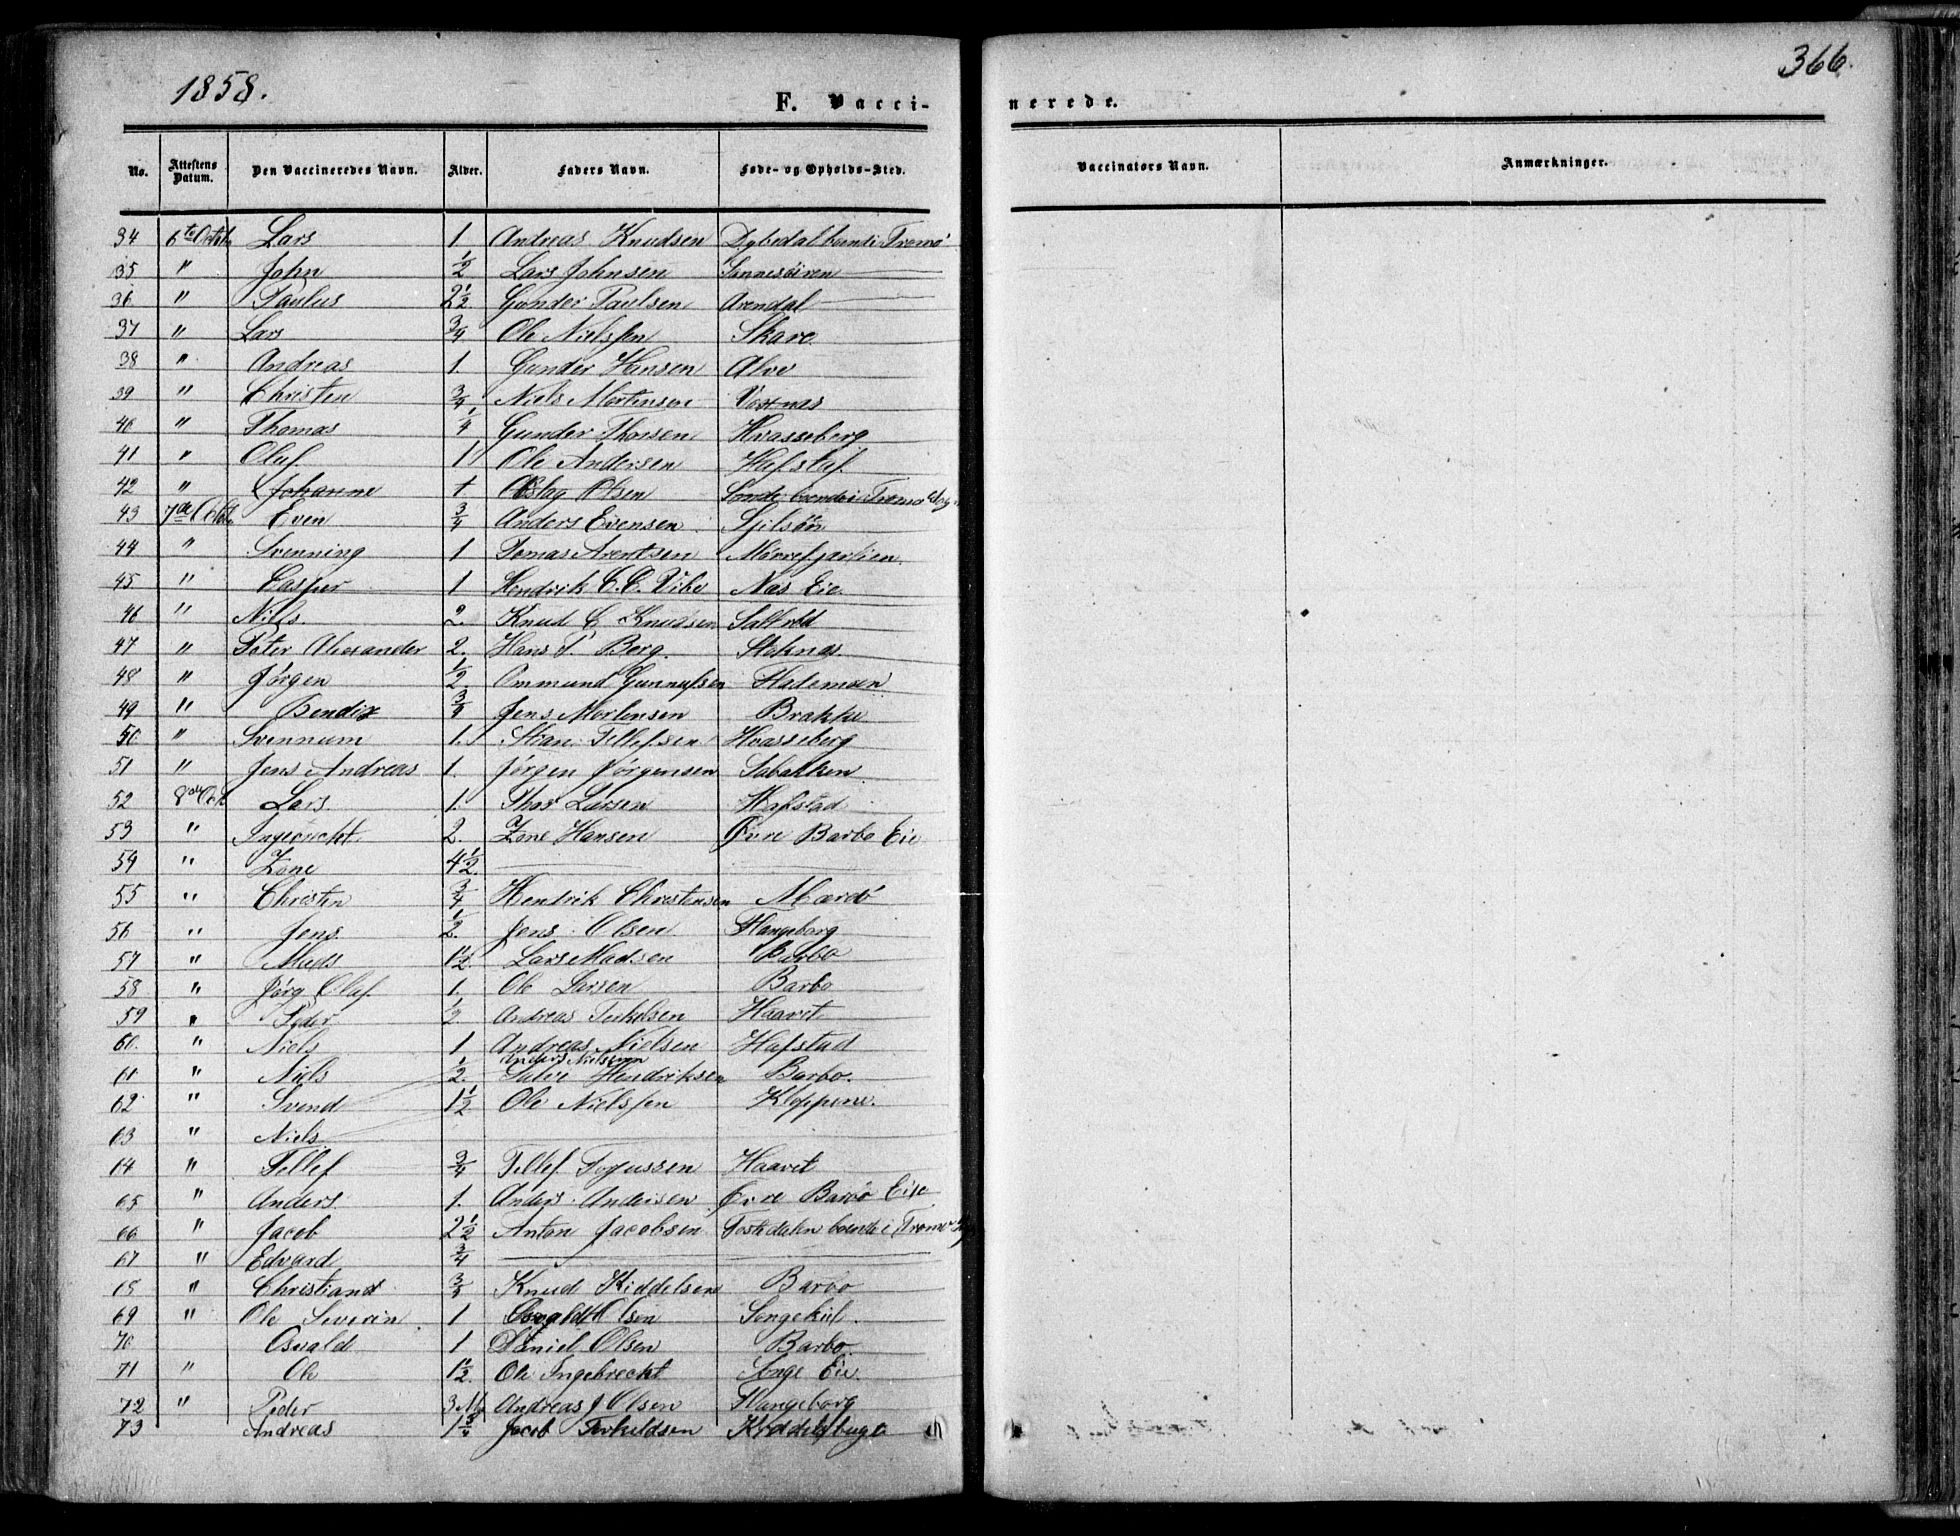 1858.
366.
F. Vacci-
nerede.
No. Attestens Datum. Den Vaccineredes Navn. Alder. Faders Navn. Føde- og Opholds-Sted. Vaccinators Navn. Anmærkninger.
34 6te Octobr Lars 1 Andreas Knudsen Dybedal boende i Tromø
35 " John ½ Lars Johnsen
36 " Paulus 2½ Gunder Paulsen Arendal
37 " Lars ¾ Ole Nielssen Skare
38 " Andreas 1. Gunder Hansen Alve
39 " Christen ¾ Niels Mortensen Voxnæs
40 " Thomas ¼ Gunder Thorsen Hvasseberg
41 " Oluf 1 Ole Andersen Hafstad
42 " Johanne 1 Aslag Olsen boende i Tromø Sogn
43 7de Octb. Even ¾ Anders Evensen
44 " Svenning 1 Tomas Arentsen
45 " Casper 1 Hendrik C. C. Vibe Næs Eie
46 " Nills 2. Knud C Knudsen Saltrød
47 " Peter Alexander 2. Hans P. Berg. Stoknæs
48 " Jørgen ½ Ommund Gunnufsen Flademoen
49 " Bendix ¾ Jens Mortensen Brække
50 " Svennum 1. Tellefsen Hvasseberg
51 " Jens Andreas 1. Jørgen Jørgensen
52 8de Oct Lars 1. Thor Larsen Hafstad
53 " Ingebrecht 2. Zone Hansen Øvre Barbo Eie
54 " Zone 4½
55 " Christen ¾ Hendrik Christensen Mærdø
56 " Jens ½ Jens Olsen Stangeborg
57 " Mads 1½ Lars Madsen Barbo
58 " Jørg Oluf 1. Ole Larsen Barbo
59 " Peder ½ Andreas Terkelsen Haavet
60. " Niels 1 Andreas Nielsen Hafstad
Anders Nielsen
61 " Niels ½ Salve Hendriksen Barbo.
62 " Svend 1½ Ole Nielssen Kloppene.
63 " Niels
64 " Tellef ¾ Tellef Torjussen Haavet
65 " Anders 1. Anders Andersen Øvre Barbo Eie
66 " Jacob 2½ Anton Jacobsen boende i Tromø
67 " Edvard ¾
68 " Christiand ¾ Knud Kiddelsen Barbo
69 " Ole Severin 1 Osvald Olsen Songekil.
70 Osvald 1 Daniel Olsen Barbo
71 " Ole 1½ Ole Ingebrecht Songe Eie.
72 " Peder 3 M. Andreas J Olsen Stangeborg
73 Andreas 1¾ Jacob Terkeldsen Kiddelsbugt